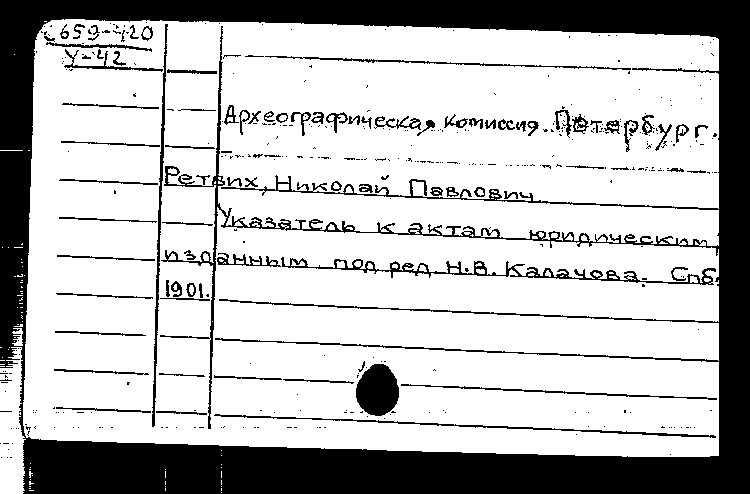 659-420
У-42
Археографическая комиссия. Петербург.
Ретвих, Николай Павлович
Указатель к актам юридическим,
изданным под ред. Н.В. Калачова. Спб.
1901.